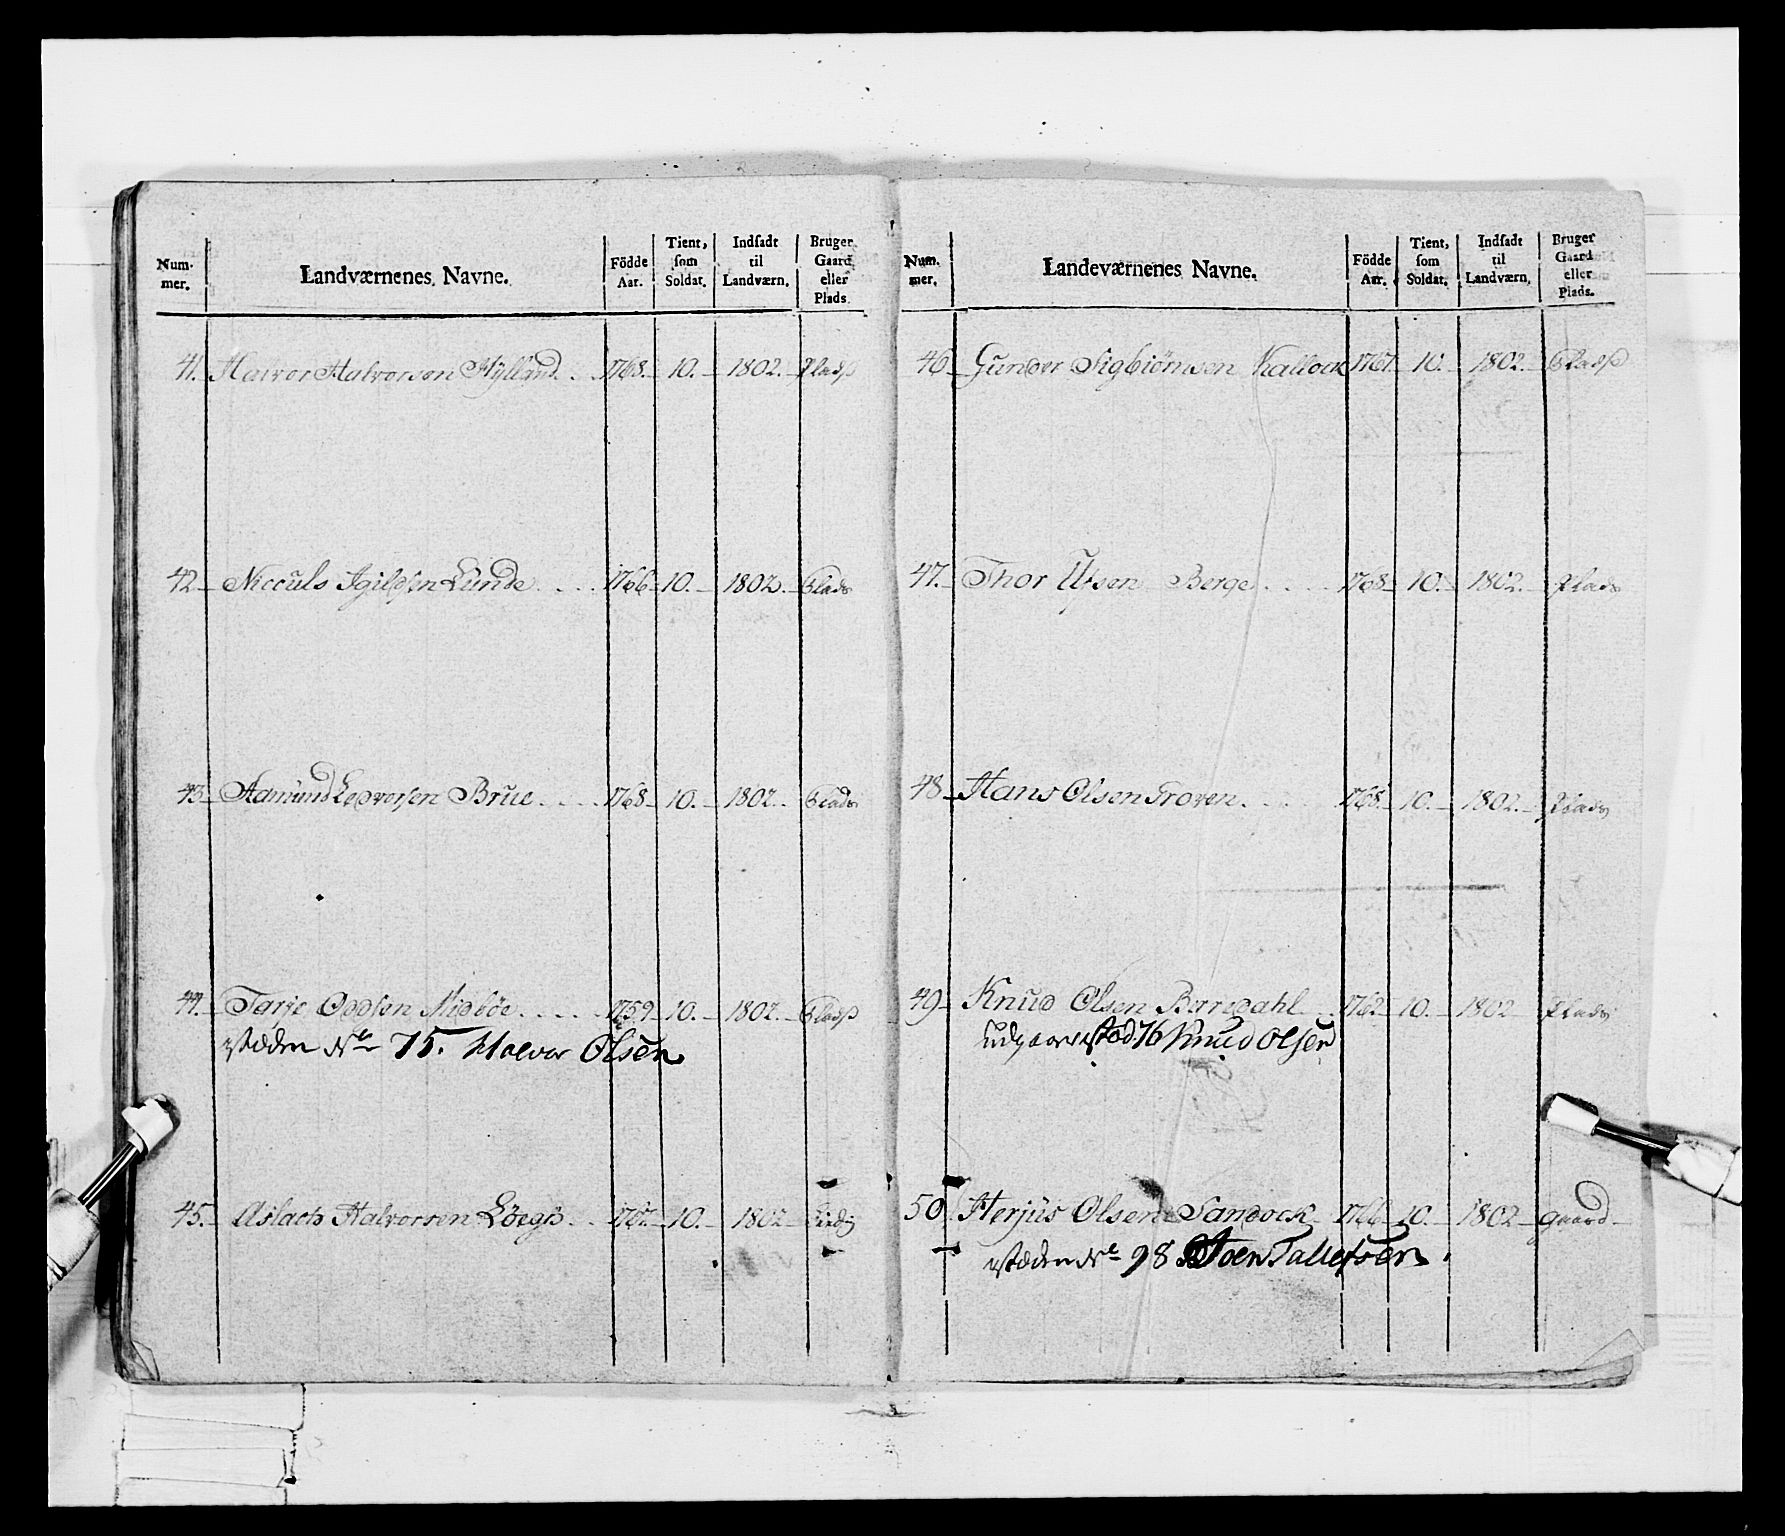 Num-
mer.
Landværnenes Navne.
Födde
Aar.
Tient,
som
Soldat.
Indsadt
til
Landværn.
Bruger
Gaard
eller
Plads
41. Halvor Halvorsen Hylland. 1768. 10. 1802. Plads
42. Niculs Igilsen Lunde. 1766. 10. 1802. Plads
43. Aamund Ledvorsen Brue. 1768. 10. 1802. Plads
44. Tarje Oddsen Midböe. 1759. 10. 1802. Plads
istæden No 75. Halvor Olsen
45. Aslach Halvorsen Löegs. 10. 1802
Num.
mer.
Landeværnenes Navne.
Födde
Aar.
Tient,
som
Soldat.
Indsadt
til
Landværn.
Bruger
Gaard
eller
Plads.
46. Gunder Sigbiörnsen Kallock 1767. 10. 1802. Plads
47. Thor Ufsen Berge. 1768. 10. 1802. Plads
48. Hans Olsen Groven. 1768. 10. 1802. Plads
49 Knud Olsen Barsdahl. 1762. 10. 1802 Plads
udgaar istæd 76 Knud Olsen
50. Herjus Olsen Sandock. 1766. 10. 1802 gaard
istæden No 98 Joen Tallefsen.